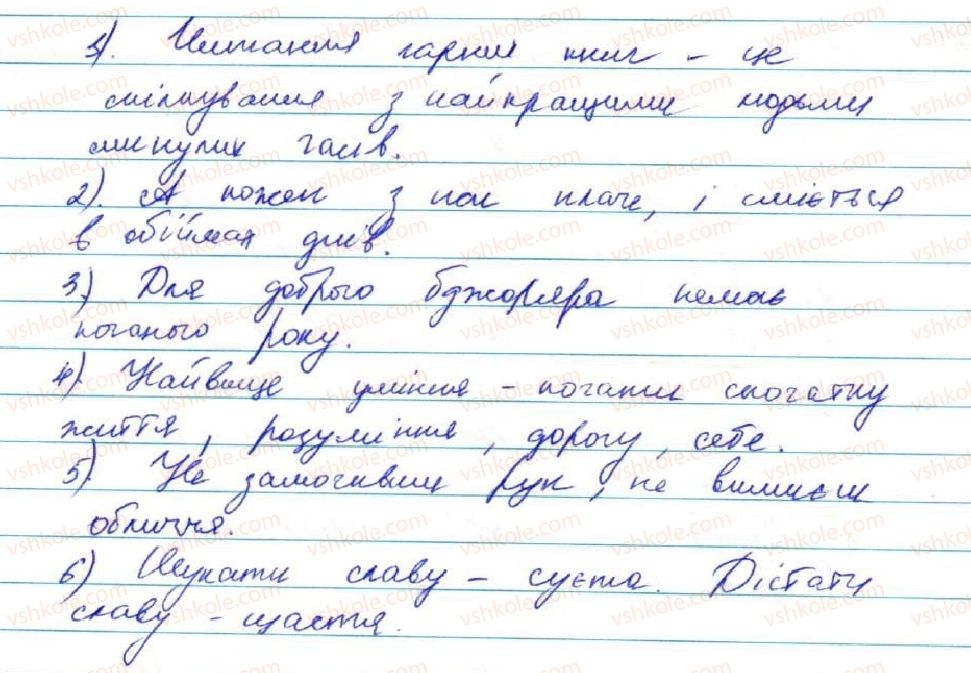 1). Читання гарних книг – це
спілкування з найкращими людьми
минулих часів.
2). А кожен з нас плаче, і сміється
в обіймах днів.
3) Для доброго бджоляра немає
поганого року.
4). Найвище уміння – починати спочатку
життя, розуміння, дорогу, себе.
5). Не замочивши рук, не вимиєш
обличчя.
6) Шукати славу – суєта. Дістати
славу – щастя.